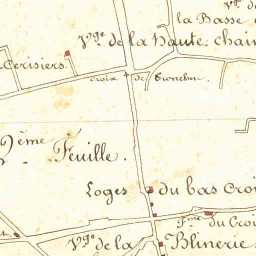 V.ge de
la Basse
V.ge de la Haute chain
Cerisiers
croix de
2ème Feuille.
Loges du bas Croi
F.me du Croi
V.ge de la Blinerie